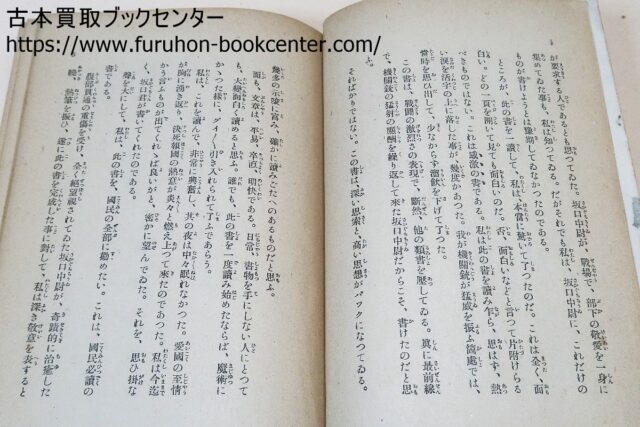 古本買取ブックセンター
https://www.furuhon-bookcenter.com/
が要求する人であるとも思つてゐた。坂口中尉が、戰場で、部下の敬愛を一身に
集めてゐた事も、私は知つてゐる。だがそれでも私は、坂口中尉に、これだけの
ものが書けようとは豫期してゐなかつたのである。
ところが、此の書を一讀して、私は本當に驚いて了つたのだ。これは全く、面
白い。どの一頁を開いて見ても面白いのだ。否、面白いなどと言つて片附けらる
べきものではない。これは感激の書である。私は此の書を讀み乍ら、思はず、熱
い涙を活字の上に落した事が、幾度かあつた。我が機關銃が猛威を振ふ箇處では、
當時を思ひ出して、少なからず溜飮を下げて了つた。
この書は、戰鬪の激烈さの表現で、斷然、他の類書を壓してゐる。眞に最前線
で、機關銃の猛射の應酬を繰り返して來た坂口中尉だからこそ、書けたのだと思
そればかりではない。この書は、深い思索と、高い思想がバツクになつてゐる。
幾多の示唆に富み、確かに讀みごたへのあるものだと思ふ。
面も、文章は、平易、卒直、明快である。日常、書物を手にしない人にとつて
も、大變面白く讀めると思ふ。誰でも、此の書を一度讀み始めたならば、魔術に
かゝつた樣に、グイ〳〵引き入れられて了ふであらう。
私は、これを讀んで、非常に興奮し、其の夜は中々眠れなかつた。愛國の至情
が胸に湧き返り、決死報國の熱意が炎々と燃え上つて來たのであつた。私は今迄
かう言ふものが出てくれゝば良いがと、密かに望んでゐた。それを、思ひ掛な
く、坂口君が書いてくれたのである。
聲を大にして、私は、此の書を、國民の全部に勸めたい。これは、國民必讀の
書である。
腹部貫通の重傷を受け、全く絕望視されてゐた坂口中尉が、奇蹟的に治癒した
曉、熱筆を振ひ、遂に此の書を完成した事に對して、私は深き敬意を表すると